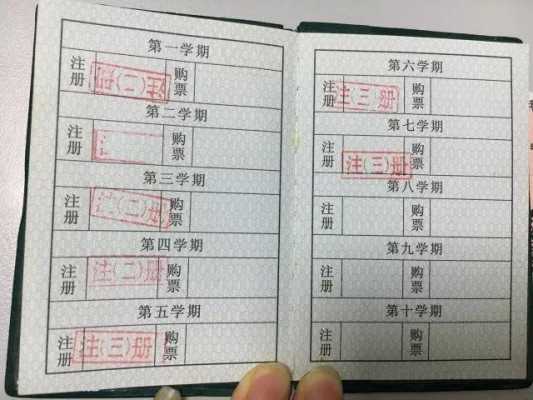 第一学期
注册 注(二)册 购票
第二学期
注册 购票
第三学期
注册 注(二)册 购票
第四学期
注册 注(二)册 购票
第五学期
注册 注(三)册 购票
第六学期
注册 注(三)册 购票
第七学期
注册 注(三)册 购票
第八学期
注册 购票
第九学期
注册 购票
第十学期
注册 购票